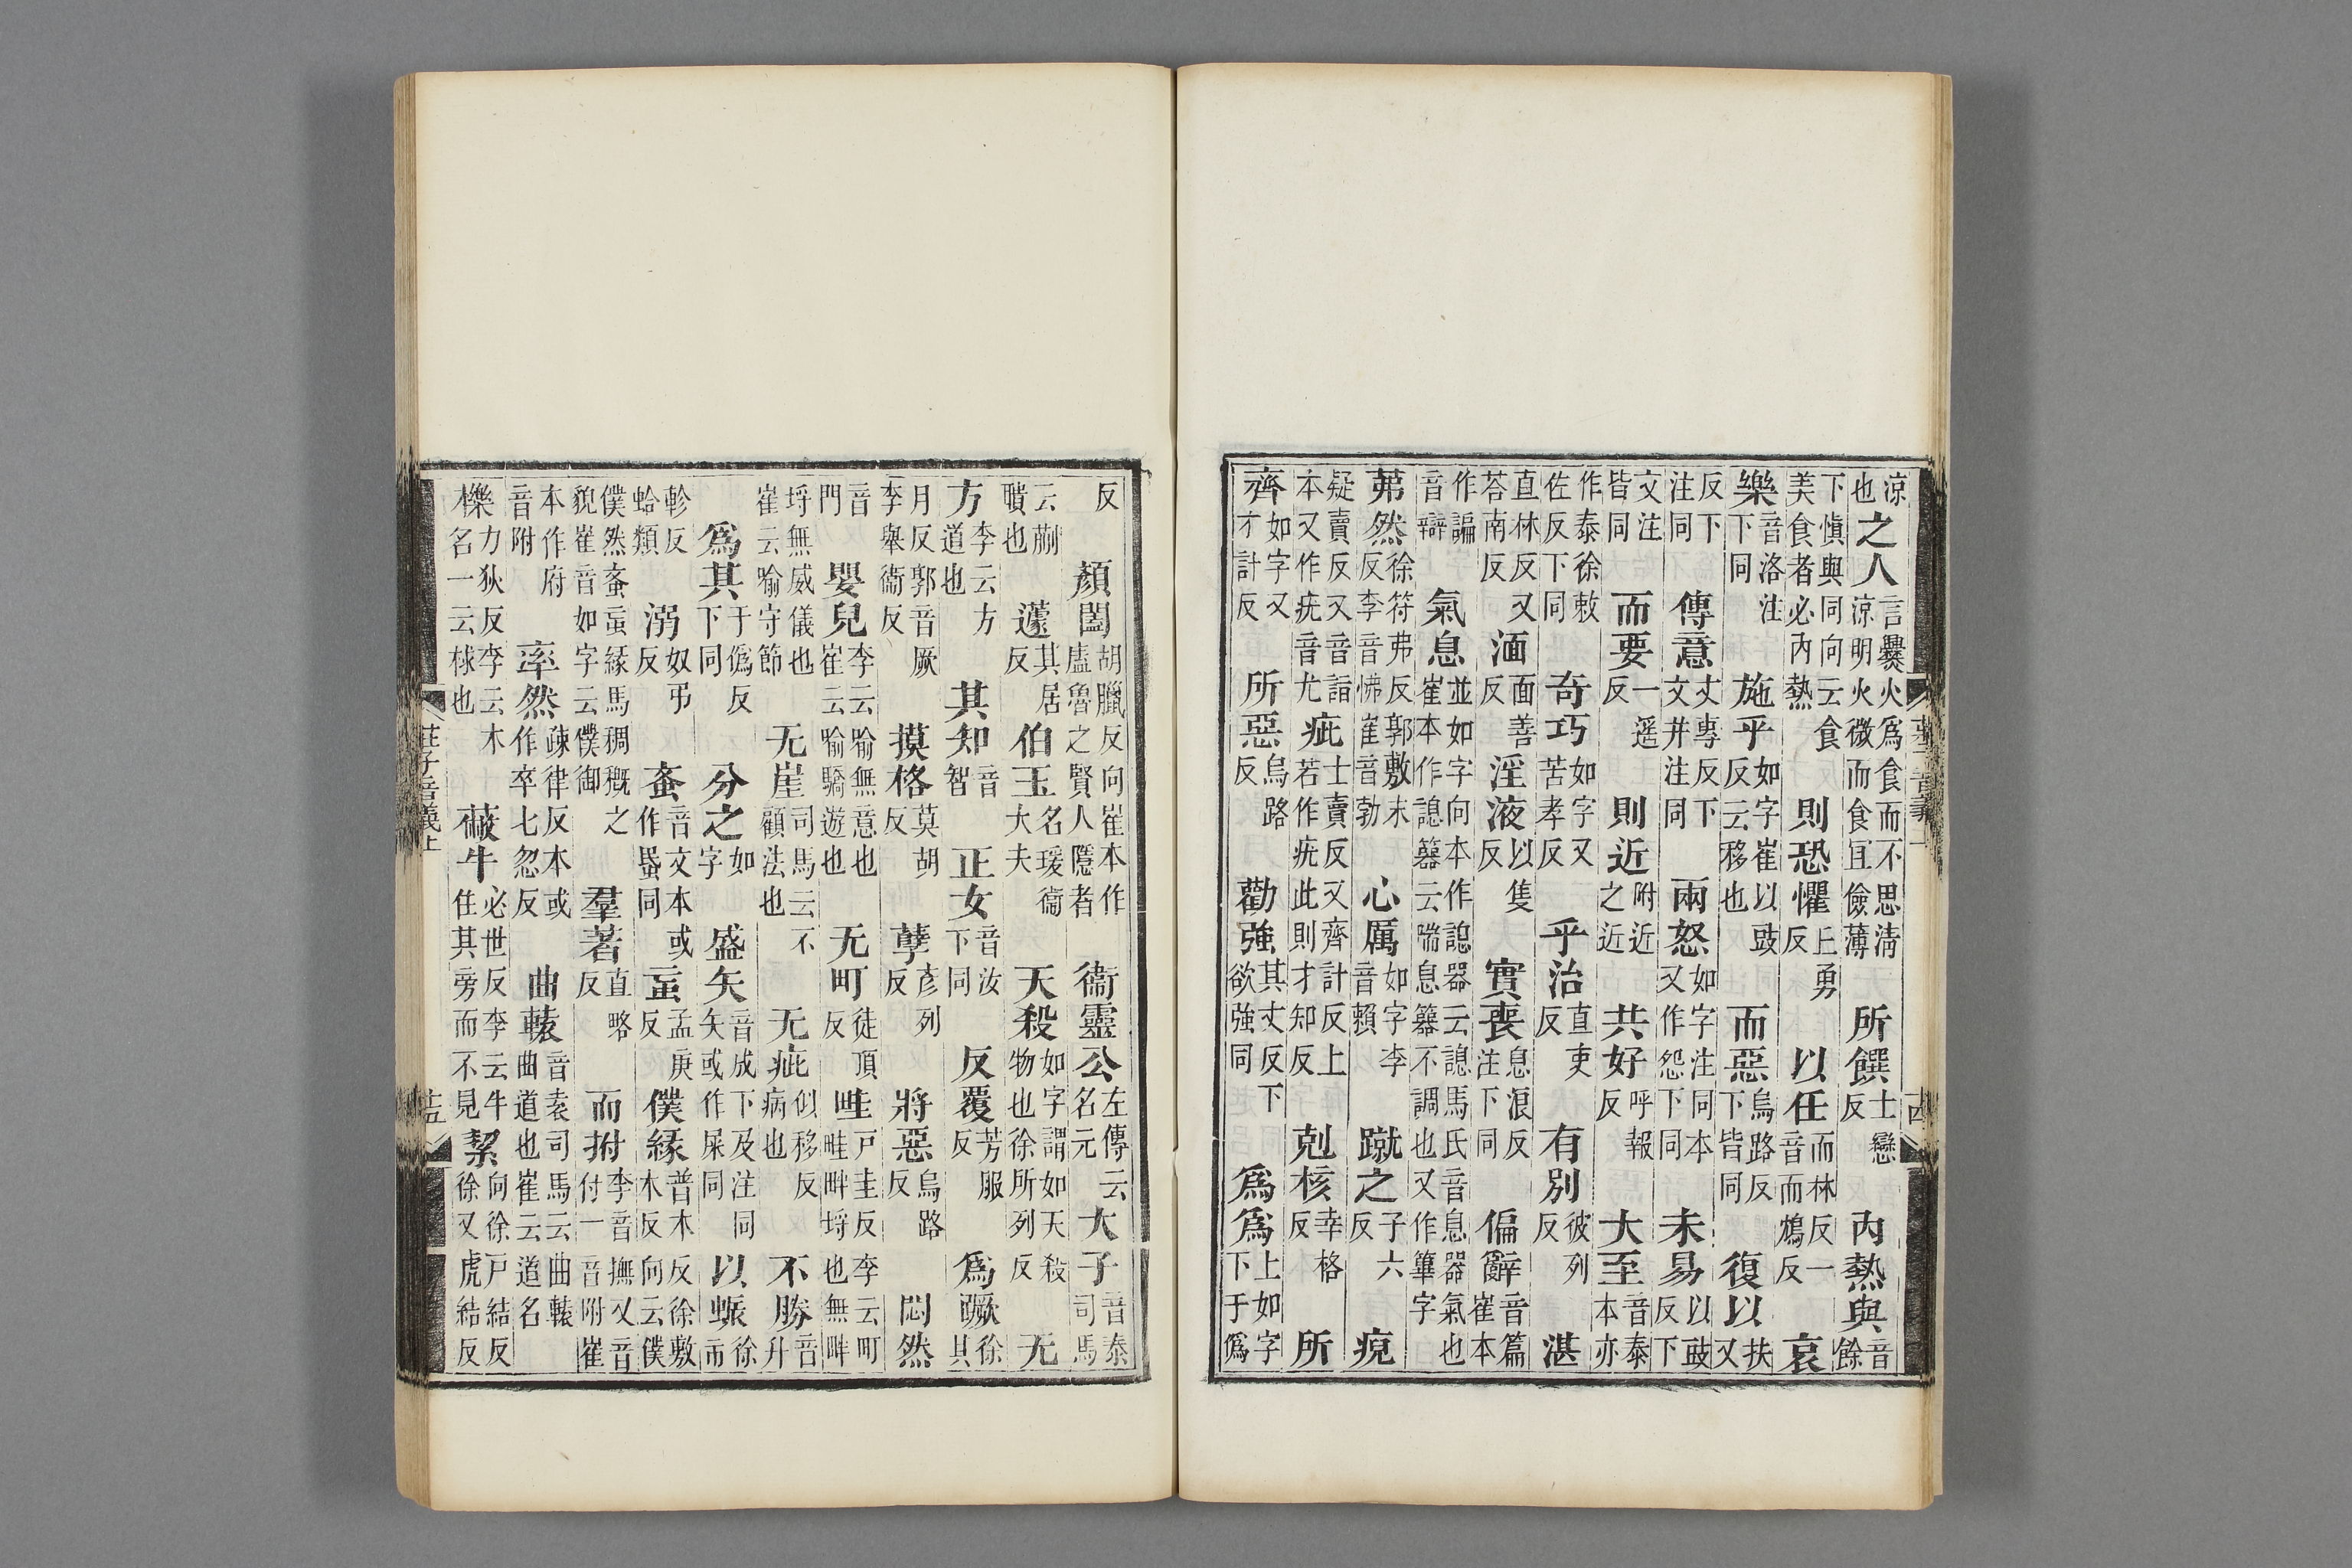 涼也之人言爨火爲食而不思清涼明火微而食宜儉薄所饌士戀反內熱與音餘
下慎與同向云食美食者必內熱則恐懼上勇反以任而林反一音而鴆反哀
樂音洛注下同施乎如字崔以豉反云移也而惡烏路反下皆同復以扶又
反下注同傳意丈專反下文并注同兩怒如字注同本又作怨下同未易以豉反下
文注皆同而要一遥反則近附近之近共好呼報反大至音泰本亦
作泰徐敕佐反下同奇巧如字又苦孝反乎治直吏反有別彼列反湛
直林反又荅南反湎面善反淫液以隻反實喪息浪反注下同偏辭音篇崔本
作諞音辯氣息並如字向本作諰器云諰馬氏音息器氣也崔本作諰云喘息不調也又作篳字
茀然徐符弗反郭敷末反李音怫崔音勃心厲如字李音賴蹴之子六反
疑賣反又音詣本又作疣音尤疵士賣反又齊計反上若作疣此則才知反剋核幸格反所
齊如字又才計反所惡烏路反勸強其丈反下欲強同爲爲上如字下于僞
反顏闔胡臘反向崔本作盧魯之賢人隱者衞靈公左傳云名元大子音泰司馬
云蒯聵也蘧其居反伯玉名瑗衞大夫天殺如字謂如天殺物也徐所列反无
方李云方道也其知音智正女音汝下同反覆芳服反爲蹶徐其
月反郭音厥李舉衞反摸格莫胡反孽彥列反將惡烏路反悶然
音門嬰兒李云喻無意也崔云喻驕遊也无町徒頂反畦戸圭反李云町畦畔埒也無畔
埒無威儀也崔云喻守節无崖司馬云不顧法也无疵似移反病也不勝音升
爲其于僞反下同分之如字盛矢音成下及注同矢或作屎同以蜄徐市
軫反蛤類溺奴弔反蚉音文本或作蟁同䖟孟庚反僕緣普木反徐敷木反向云僕
僕然蚉䖟緣馬稠穊之貌崔音如字云僕御羣著直略反而拊李音撫又音付一音附崔
本作府音附率然疎律反本或作卒七忽反曲轅音袁司馬云曲轅曲道也崔云道名
櫟力狄反李云木名一云梂也蔽牛必世反李云牛住其旁而不見絜向徐戸結反徐又虎結反
莊子音義上
十五